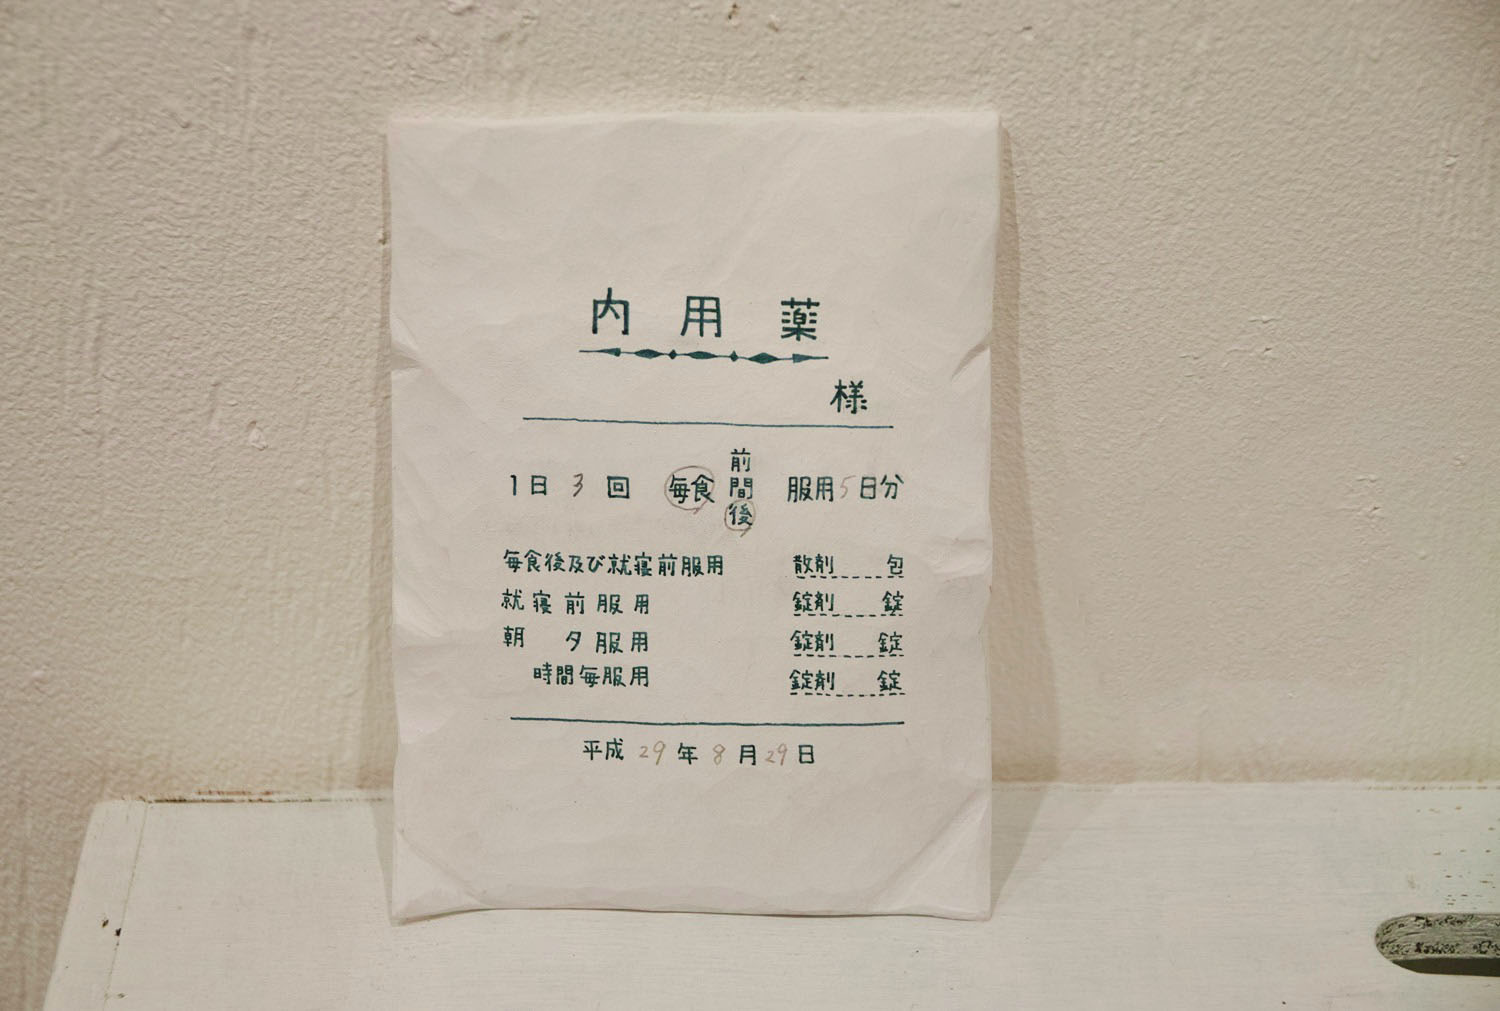 内用薬
様
1日 3 回 毎食 前 間 後 服用 5 日分
毎食後及び就寝前服用 散剤 包
就寝前服用 錠剤 錠
朝 夕服用 錠剤 錠
時間毎服用 錠剤 錠
平成 29 年 8 月 29 日